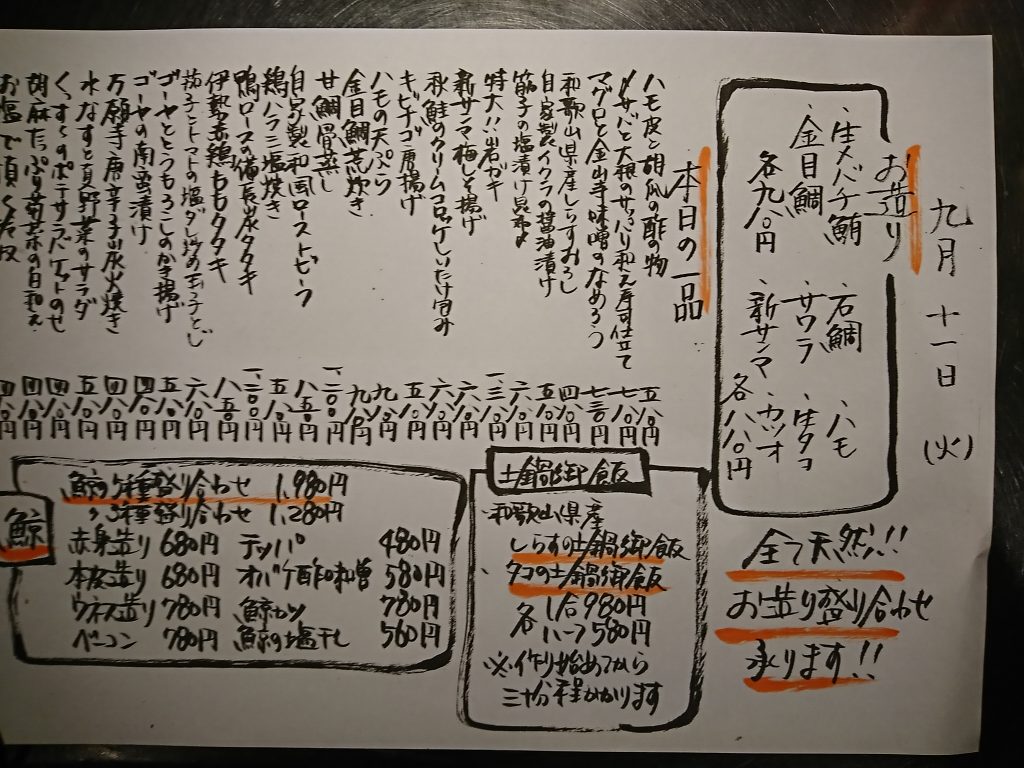 九月十一日(火)
お造り
・生メバチ鮪 ・石鯛 ・ハモ
・金目鯛 ・サワラ ・生タコ
各九八〇円 ・新サンマ ・カツオ
各八八〇円
全て天然!!
お造り盛り合わせ
承ります!!
本日の一品
ハモ皮と胡瓜の酢の物 五八〇円
〆サバと大根のサッパリ和え寿司仕立て 七八〇円
マグロと金山寺味噌のなめろう 七三〇円
和歌山県産しらすおろし 四八〇円
自家製イクラの醤油漬け 五八〇円
筋子の塩漬け昆布〆 六八〇円
特大!!岩ガキ
新サンマ梅しそ揚げ 六八〇円
秋鮭のクリームコロッケしいたけ包み 六八〇円
キビナゴ唐揚げ 五八〇円
ハモの天ぷら 九八〇円
金目鯛荒炊き 九八〇円
甘鯛骨蒸し
自家製和風ローストビーフ 八五〇円
鶏ハラミ塩焼き 五八〇円
鴨ロースの備長炭タタキ
伊勢赤鶏ももタタキ 八五〇円
茄子とトマトの塩ダレ炒め玉子とじ 六八〇円
ゴーヤととうもろこしのかき揚げ 五八〇円
ゴーヤの南蛮漬け 四八〇円
万願寺唐辛子炭火焼き 四八〇円
水なすと貝野菜のサラダ 五八〇円
くずしポテサラバゲットのせ 四八〇円
胡麻たっぷり菊菜の白和え 四八〇円
お塩で頂く冷奴 四八〇円
土鍋御飯
・和歌山県産
しらすの土鍋御飯
・タコの土鍋御飯
各 1合980円
ハーフ580円
※作り始めてから
三十分程かかります
鯨
鯨5種盛り合わせ 1,980円
〃3種盛り合わせ 1,280円
赤身造り 680円 テッパ 480円
本皮造り 680円 オバケ酢味噌 580円
ウネス造り 780円 鯨カツ 780円
ベーコン 780円 鯨の塩干し 560円